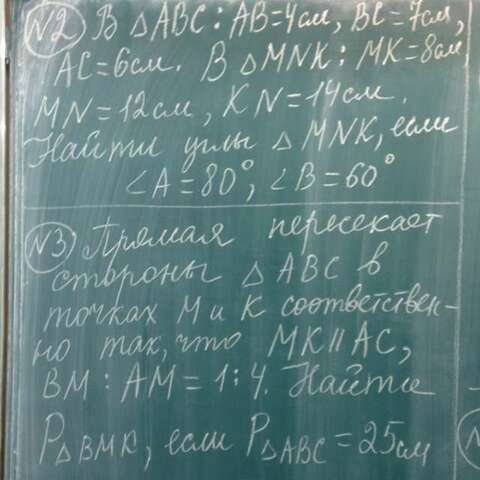 N2 В △ABC: AB=4см, BC=7см,
AC=6см. В △MNK: MK=8см,
MN=12см, KN=14см.
Найти углы △MNK, если
∠A=80°, ∠B=60°
N3 Прямая пересекает
стороны △ABC в
точках M и K соответствен-
но так, что MK∥AC,
BM:AM=1:4. Найти
P△BMK, если P△ABC=25см